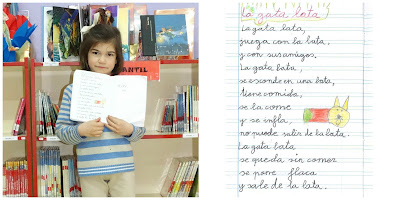 ANTIL
la gata lata
La gata lata,
juega con la lata,
y con sus amigos.
La gata lata,
se esconde en una bota,
tiene comida,
se la come
y se infla,
no puede salir de la bota.
La gata lata
se queda sin comer
se pone flaca
y sale de la lata.